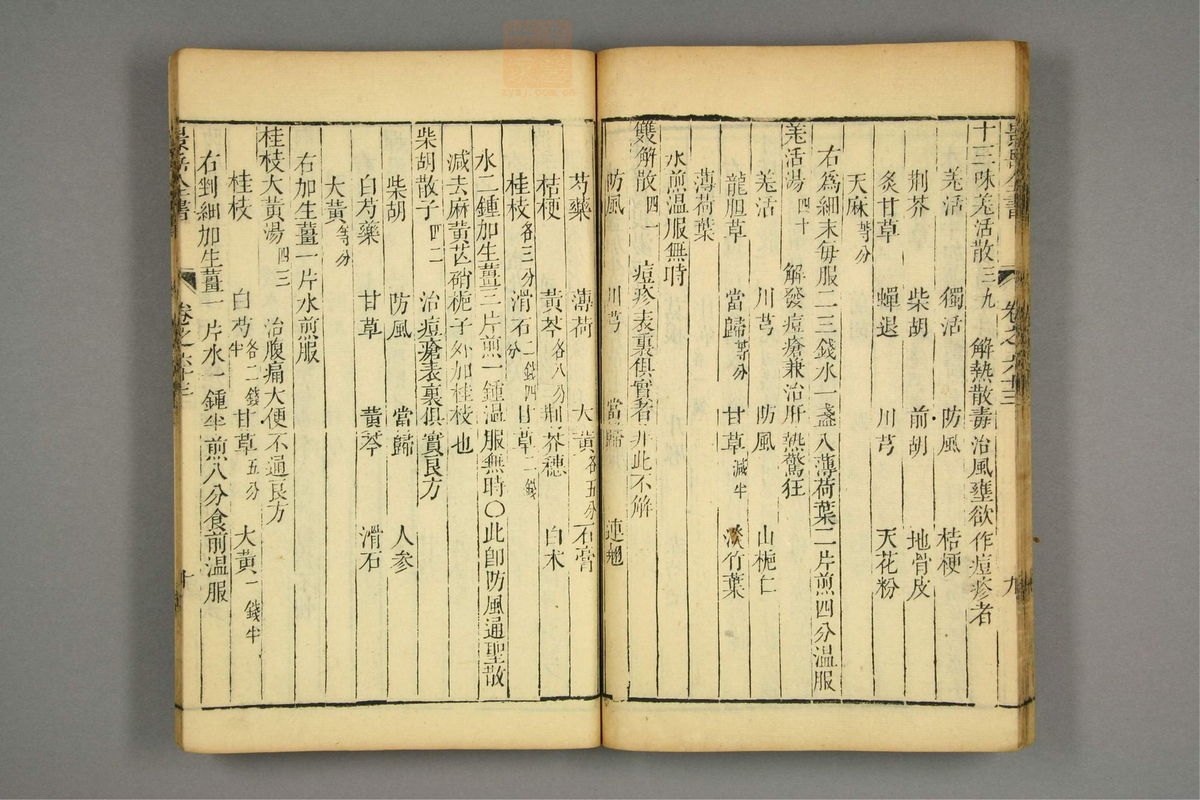 景岳全書
卷之六十三
九
十三味羗活散三九 解熱散毒治風壅欲作痘疹者
羗活 獨活 防風 桔梗
荆芥 柴胡 前胡 地骨皮
炙甘草 蟬退 川芎 天花粉
天麻等分
右爲細末每服二三錢水一盞入薄荷葉二片煎四分温服
羗活湯四十 解發痘瘡兼治肝熱驚狂
羗活 川芎 防風 山梔仁
龍胆草 當歸等分 甘草減半 淡竹葉
薄荷葉
水煎温服無時
雙解散四一 痘疹表裏俱實者非此不解
防風 川芎 當歸 連翹
芍藥 薄荷 大黃各五分 石膏
桔梗 黃芩各八分 荆芥穗 白朮
桂枝各三分 滑石二錢四分 甘草一錢
水二鍾加生薑三片煎一鍾温服無時○此卽防風通聖散
減去麻黃芒硝梔子外加桂枝也
柴胡散子四二 治痘瘡表裏俱實良方
柴胡 防風 當歸 人參
白芍藥 甘草 黃芩 滑石
大黃等分
右加生薑一片水煎服
桂枝大黃湯四三 治腹痛大便不通良方
桂枝 白芍各二錢半 甘草五分 大黃一錢半
右剉細加生薑一片水一鍾半煎八分食前温服
景岳全書
卷之六十三
十